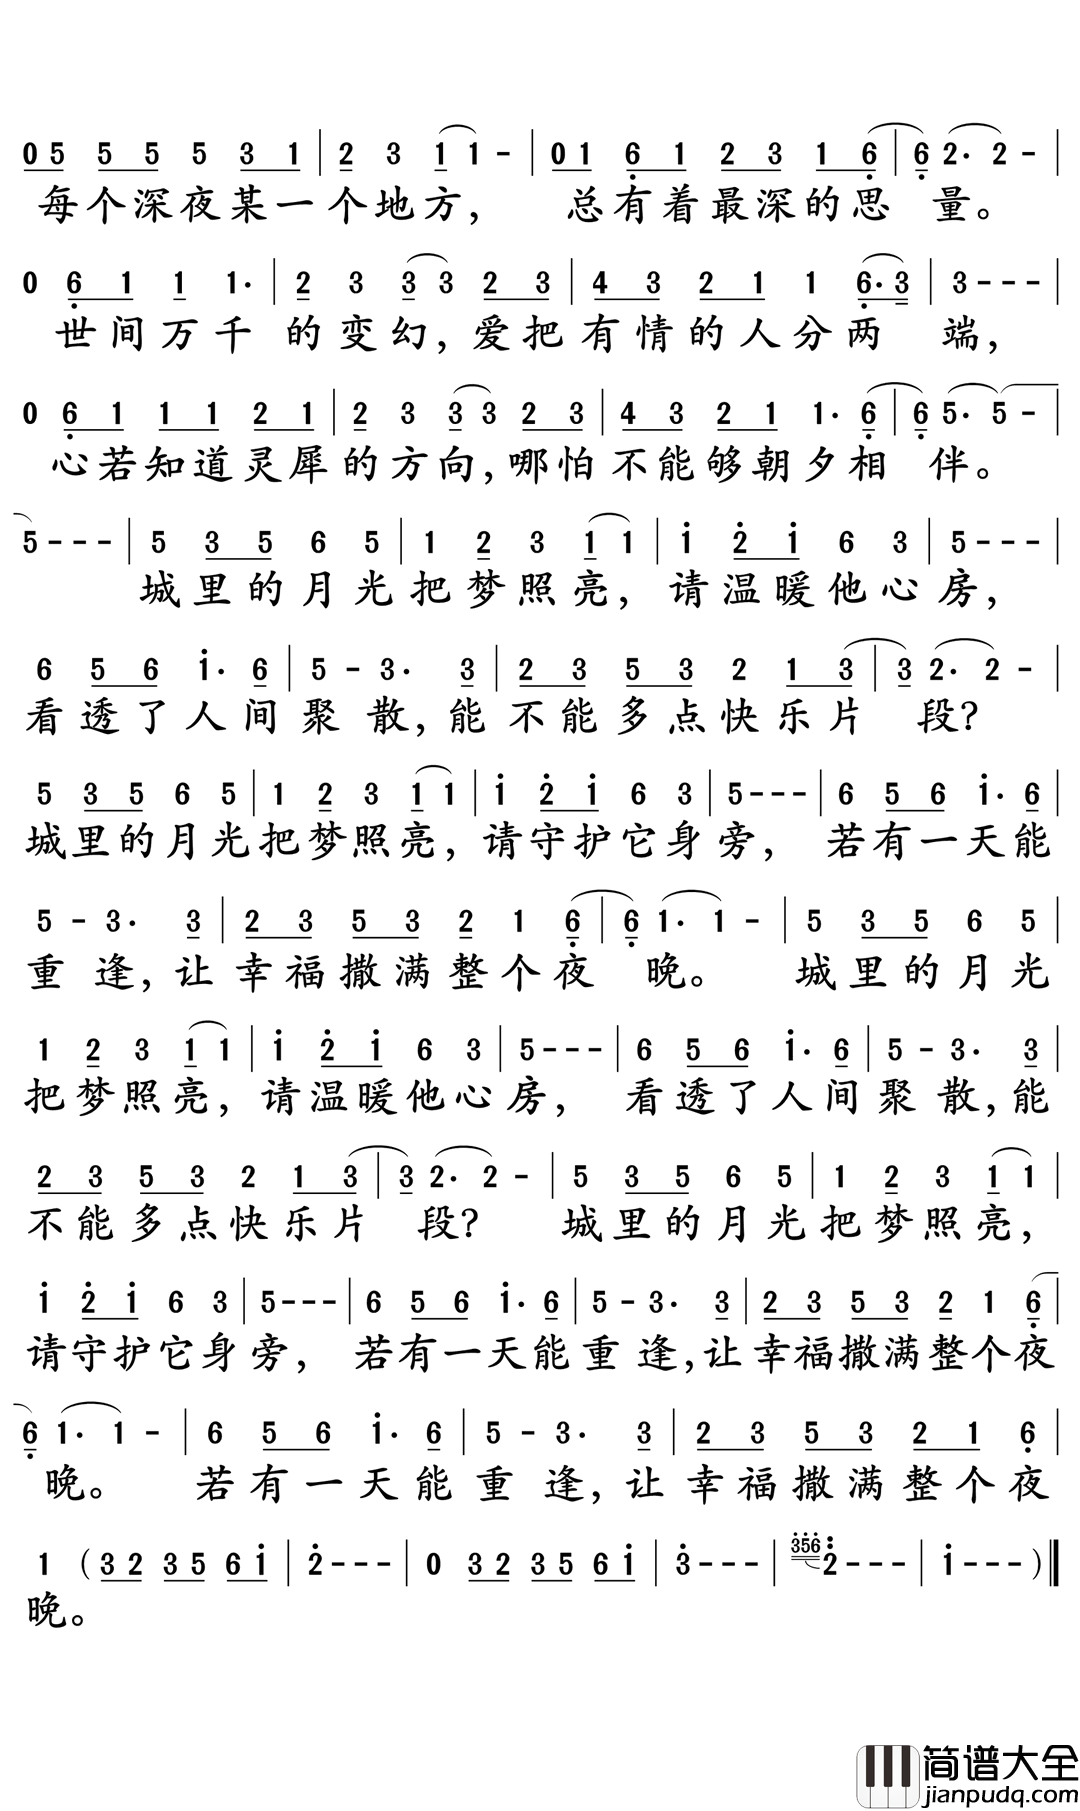 05 5 5 5 3 1 | 2 3 1 1 - | 01 6 1 2 3 1 6 | 6 2. 2 - |
每个深夜某一个地方， 总有着最深的思 量。
0 6 1 1 1. | 2 3 3 3 2 3 | 4 3 2 1 1 6. 3 | 3 - - - |
世间万千 的变幻，爱把有情的人分两 端，
0 6 1 1 1 2 1 | 2 3 3 3 2 3 | 4 3 2 1 1. 6 | 6 5. 5 - |
心若知道灵犀的方向，哪怕不能够朝夕相 伴。
5 - - - | 5 3 5 6 5 | 1 2 3 1 1 | i 2 i 6 3 | 5 - - - |
城里的月光把梦照亮， 请温暖他心房，
6 5 6 i. 6 | 5 - 3. 3 | 2 3 5 3 2 1 3 | 3 2. 2 - |
看透了人间聚散，能不能多点快乐片 段？
5 3 5 6 5 | 1 2 3 1 1 | i 2 i 6 3 | 5 - - - | 6 5 6 i. 6 |
城里的月光把梦照亮，请守护它身旁， 若有一天能
5 - 3. 3 | 2 3 5 3 2 1 6 | 6 1. 1 - | 5 3 5 6 5 |
重逢，让幸福撒满整个夜 晚。 城里的月光
1 2 3 1 1 | i 2 i 6 3 | 5 - - - | 6 5 6 i. 6 | 5 - 3. 3 |
把梦照亮，请温暖他心房， 看透了人间聚散，能
2 3 5 3 2 1 3 | 3 2. 2 - | 5 3 5 6 5 | 1 2 3 1 1 |
不能多点快乐片 段？ 城里的月光把梦照亮，
i 2 i 6 3 | 5 - - - | 6 5 6 i. 6 | 5 - 3. 3 | 2 3 5 3 2 1 6 |
请守护它身旁， 若有一天能重逢，让幸福撒满整个夜
6 1. 1 - | 6 5 6 i. 6 | 5 - 3. 3 | 2 3 5 3 2 1 6 |
晚。 若有一天能重逢，让幸福撒满整个夜
1 (3 2 3 5 6 i | 2 - - - | 0 3 2 3 5 6 i | 3 - - - | 356 2 - - - | i - - - )‖
晚。
简谱大全
jianpudq.com